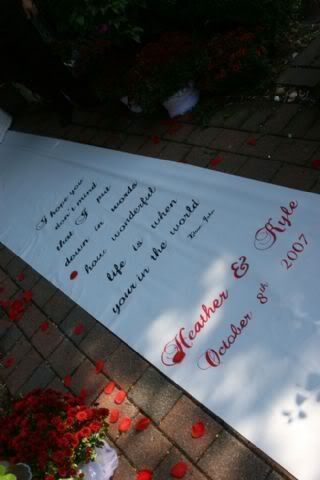 I hope you
don't mind
that I put
down in words
how wonderful
life is when
your in the world
Elton John
Heather & Kyle
October 8th
2007